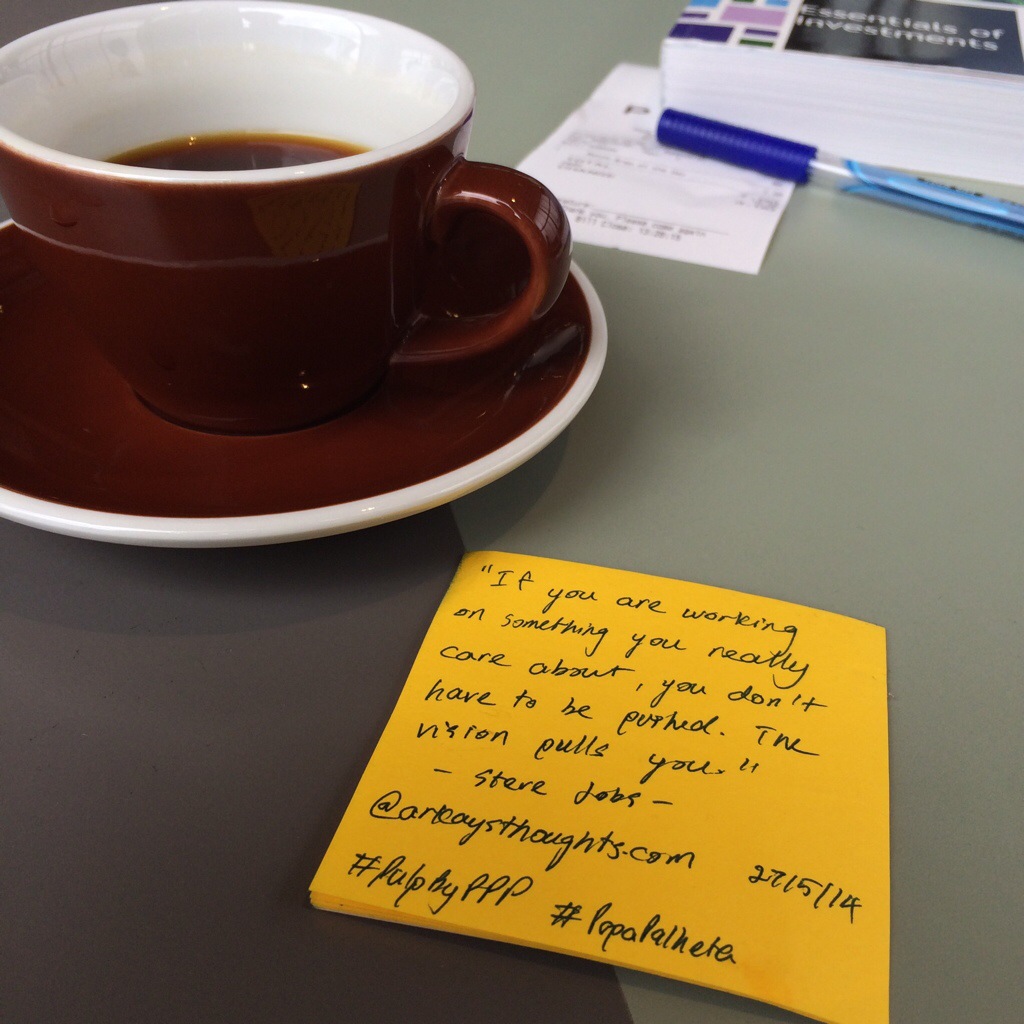 Essentials of
Investments
"If you are working
on something you really
care about, you don't
have to be pushed. The
vision pulls you."
- Steve Jobs -
@arkaysthoughts.com
27/5/14
#PulpByPPP
#PapaPalheta